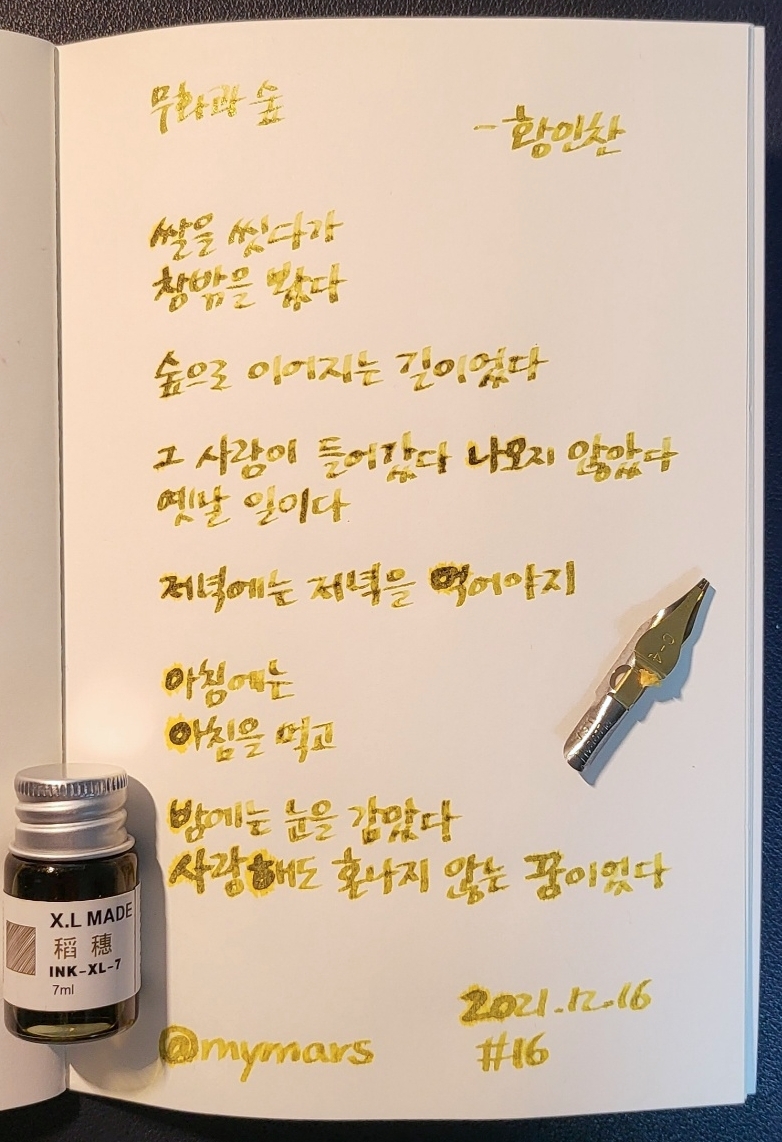 무화과 숲
- 황인찬
쌀을 씻다가
창밖을 봤다
숲으로 이어지는 길이었다
그 사람이 들어갔다 나오지 않았다
옛날 일이다
저녁에는 저녁을 먹어야지
아침에는
아침을 먹고
밤에는 눈을 감았다
사랑해도 혼나지 않는 꿈이었다
X.L MADE
稻穗
INK-XL-7
7ml
2021.12.16
@mymars
#16